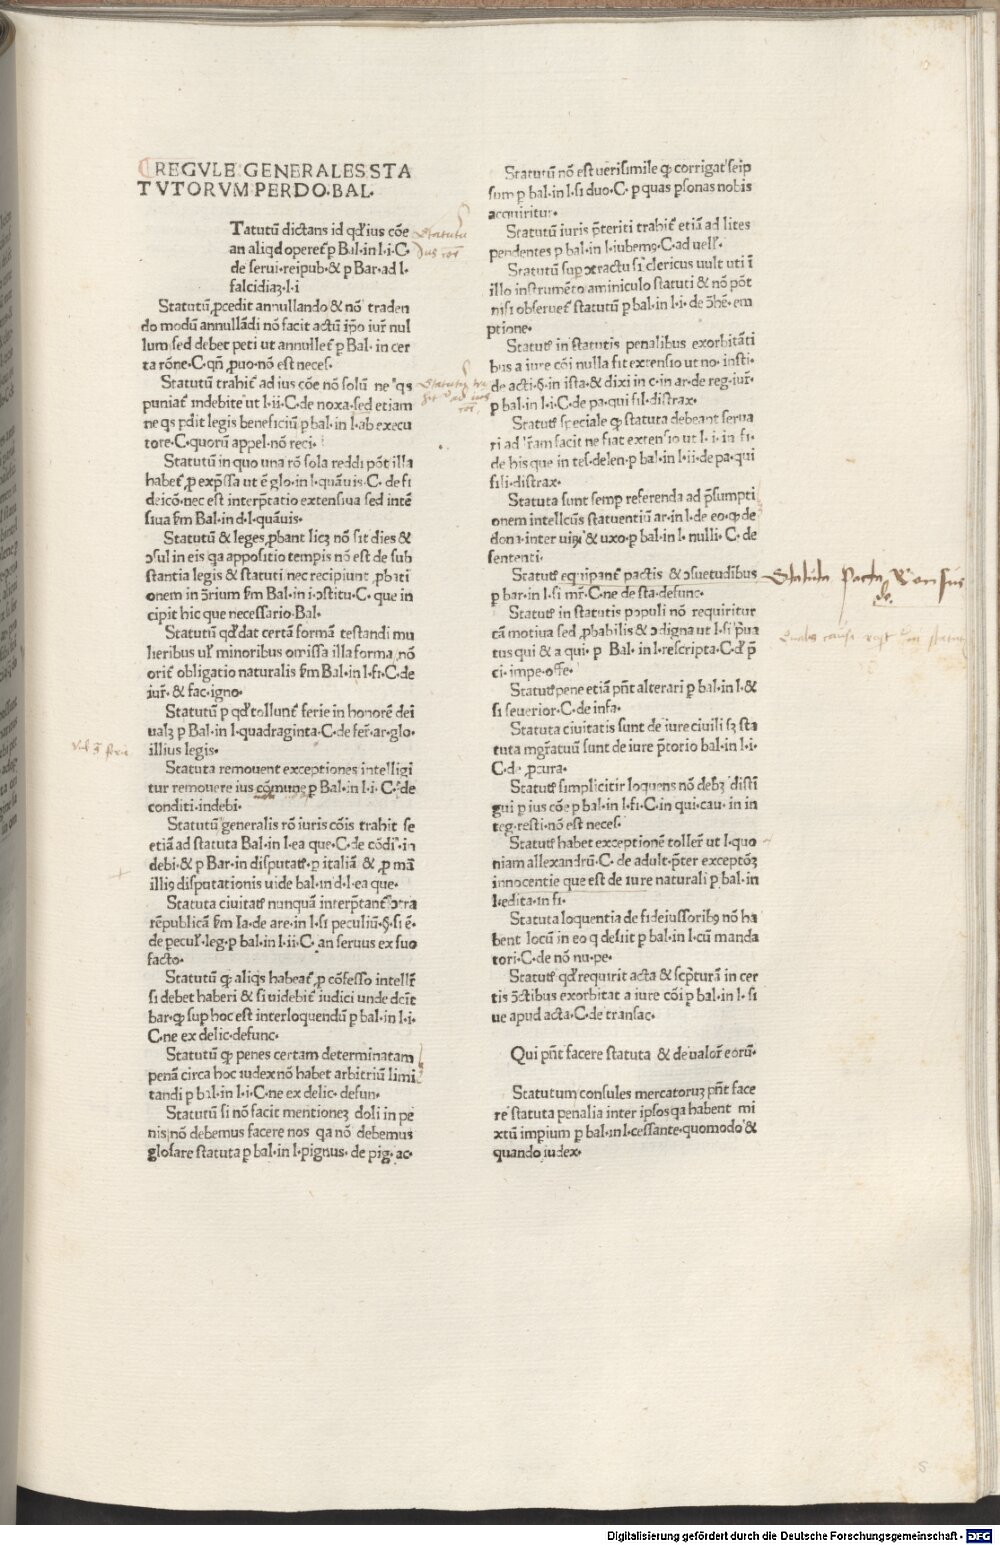 REGVLE GENERALES STA
TVTORVM PER DO·BAL·
Tatutū dictans id qđ ius cōe
an aliqd operet̃ p Bal·in l·i·C·
de serui·reipub·& p Bar·ad l·
falcidiaʒ·l·i
Statutū ꝓcedit annullando & nō traden
do modū annullādi nō facit actū ip̄o iur̃ nul
lum sed debet peti ut annullet̃ p Bal·in cer
ta rōne·C·qn̄ ꝓuo·nō est neces·
Statutū trahit̃ ad ius cōe nō solū ne qs
puniat̃ indebite ut l·ii·C·de noxa·sed etiam
ne qs pdit legis beneficiū p bal·in l·ab execu
tore·C·quorū appel·nō reci·
Statutū in quo una rō sola reddi pōt illa
habet̃ ꝓ exp̄ssa ut ē glo·in l·quāuis·C·de fi
deicō·nec est interp̄tatio extensiua sed intē
siua fm Bal·in d·l·quāuis·
Statutū & leges ꝓbant licʒ nō sit dies &
ɔsul in eis qa appositio tempis nō est de sub
stantia legis & statuti nec recipiunt ꝓbati
onem in ɔ̄rium fm Bal·in i·ɔstitu·C·que in
cipit hic que necessario·Bal·
Statutū qđ dat certā formā testandi mu
lieribus ul̃ minoribus omissa illa forma nō
orit̃ obligatio naturalis fm Bal·in l·fi·C·de
iur̃·& fac·igno·
Statutū p qđ tollunt̃ ferie in honorē dei
ualʒ p Bal·in l·quadraginta·C·de fer̃·ar·glo·
illius legis·
Statuta remouent exceptiones intelligi
tur remouere ius cōmune p Bal·in l·i·C·de
conditi·indebi·
Statutū generalis rō iuris cōis trahit se
etiā ad statuta Bal·in l·ea que·C·de cōdi·in
debi·& p Bar·in disputat̃·p italiā & ꝓ mā
illiꝰ disputationis uide bal·in d·l·ea que·
Statuta ciuitat̃ nunquā interp̄tant̃ ɔtra
rēpublicā fm Ia·de are·in l·si peculiū·§·si ē·
de pecul̃·leg·p bal·in l·ii·C·an seruus ex suo
facto·
Statutū ꝙ aliqs habeat̃ ꝓ cōfesso intell̃r
si debet haberi & si uidebit̃ iudici unde dc̄it
bar·ꝙ sup hoc est interloquendū p bal·in l·i·
C·ne ex delic·defunc·
Statutū ꝙ penes certam determinatam
penā circa hoc iudex nō habet arbitriū limi
tandi p bal·in l·i·C·ne ex delic·defun·
Statutū si nō facit mentioneʒ doli in pe
nis nō debemus facere nos qa nō debemus
glosare statuta p bal·in l·pignus·de pig·ac·
Statutū nō est uerisimile ꝙ corrigat seip
sum p bal·in l·si duo·C·p quas psonas nobis
acquiritur·
Statutū iuris p̄teriti trahit̃ etiā ad lites
pendentes p bal·in l·iubemꝰ·C·ad uell̃·
Statutū sup ɔtractu si clericus uult uti ī
illo instrumēto aminiculo statuti & nō pōt
nisi obseruet̃ statutū p bal·in l·i·de ɔ̄hē·em
ptione·
Statut̃ in statutis penalibus exorbitāti
bus a iure cōi nulla fit extensio ut no·insti·
de acti·§·in ista·& dixi in c·in ar·de reg·iur̃·
p bal·in l·i·C·de pa·qui fil·distrax·
Statut̃ speciale ꝙ statuta debeant serua
ri ad l̃ram facit ne fiat extensio ut l·i·in fi·
de his que in tes·delen·p bal·in l·ii·de pa·qui
fili·distrax·
Statuta sunt semp referenda ad p̄sumpti
onem intellcūs statuentiū ar·in l·de eo·ꝙ de
dona·inter uiʒ & uxo·p bal·in l·nulli·C·de
sententi·
Statut̃ equipant̃ pactis & ɔsuetudībus
p bar·in l·si mr̃·C·ne de sta·defunc·
Statut̃ in statutis populi nō requiritur
cā motiua sed ꝓbabilis & ɔdigna ut l·si p̄ua
tus qui & a qui·p Bal·in l·rescripta·C·đ p̄
ci·impe·offe·
Statut̃ pene etiā pñt alterari p bal·in l·&
si seuerior·C·de infa·
Statuta ciuitatis sunt de iure ciuili sʒ sta
tuta mgr̃atuū sunt de iure p̄torio bal·in l·i·
C·de ꝓcura·
Statut̃ simplicitir loquens nō debʒ disti
gui p ius cōe p bal·in l·fi·C·in qui·cau·in in
teg·resti·nō est neces·
Statut̃ habet exceptionē toller̃ ut l·quo
niam allexandrū·C·de adult·p̄ter exceptōʒ
innocentie que est de iure naturali p bal·in
l·edita·in fi·
Statuta loquentia de fideiussoribꝰ nō ha
bent locū in eo q desiit p bal·in l·cū manda
tori·C·de nō nu·pe·
Statut̃ qđ requirit acta & scp̄turā in cer
tis ɔ̄ctibus exorbitat a iure cōi p bal·in l·si
ue apud acta·C·de transac·
Qui pñt facere statuta & de ualor̃ eorū·
Statutum consules mercatoruʒ pñt face
re statuta penalia inter ipsos qa habent mi
xtū impium p bal·in l·cessante·quomodo &
quando iudex·
Statuta
Statuta Pacta
Digitalisierung gefördert durch die Deutsche Forschungsgemeinschaft · DFG